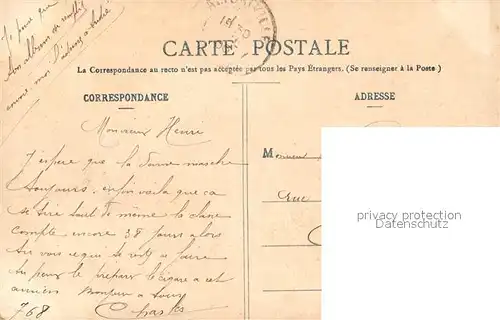 Je pense que
ton album se remplit
comme moi
CARTE POSTALE
La Correspondance au recto n'est pas acceptée par tous les Pays Étrangers. (Se renseigner à la Poste)
CORRESPONDANCE
ADRESSE
Monsieur Henri
J'espère que la Dame marche
toujours. enfin voila que ça
se tire tout de même la classe
compte encore 38 jours alors
tu vois ce que tu vas faire
préparer le cigare a cet
ancien Bonjour a tous
Charles
768
M
rue
privacy protection
Datenschutz